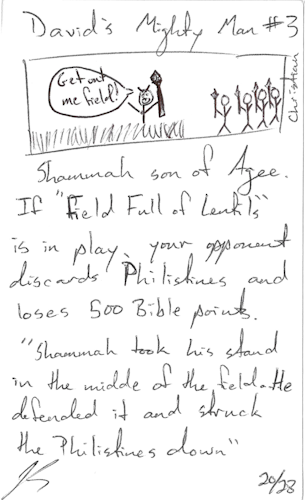 David's Mighty Man #3
Get out
me field!
Christian
Shammah son of Agee.
If "Field Full of Lentils"
is in play, your opponent
discards Philistines and
loses 500 Bible points.
"Shammah took his stand
in the middle of the field. He
defended it and struck
the Philistines down"
20/28